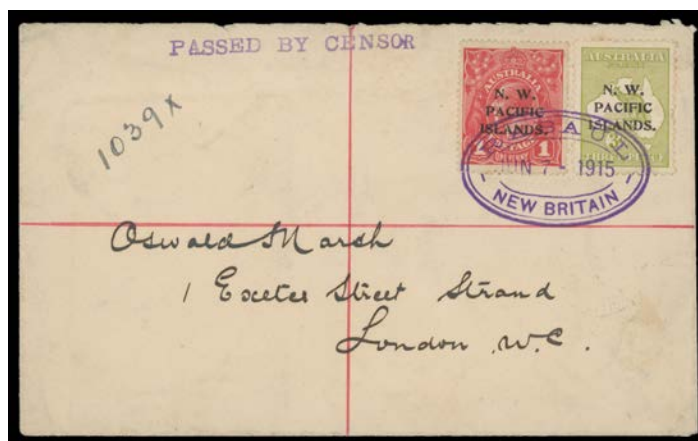 PASSED BY CENSOR
1039X
AUSTRALIA
N. W.
PACIFIC
ISLANDS.
1 1
AUSTRALIA
N. W.
PACIFIC
ISLANDS.
RABAUL
JUN 7 - 1915
NEW BRITAIN
Oswald Marsh
1 Exeter Street Strand
London W.C.